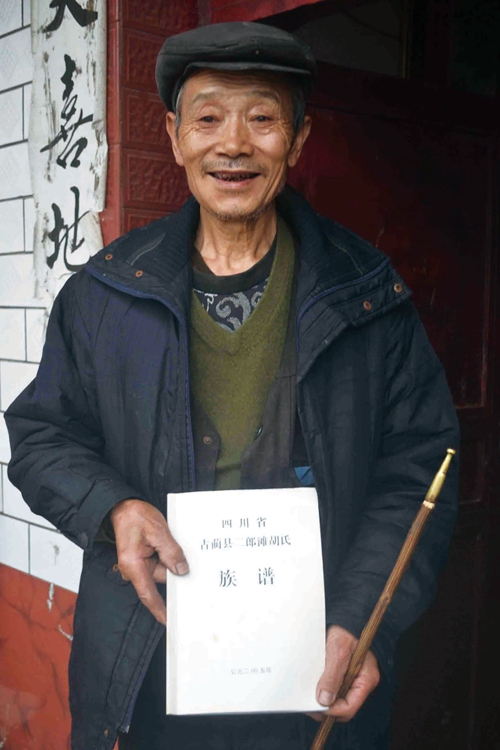 喜
地
四川省
古蔺县二郎滩胡氏
族谱